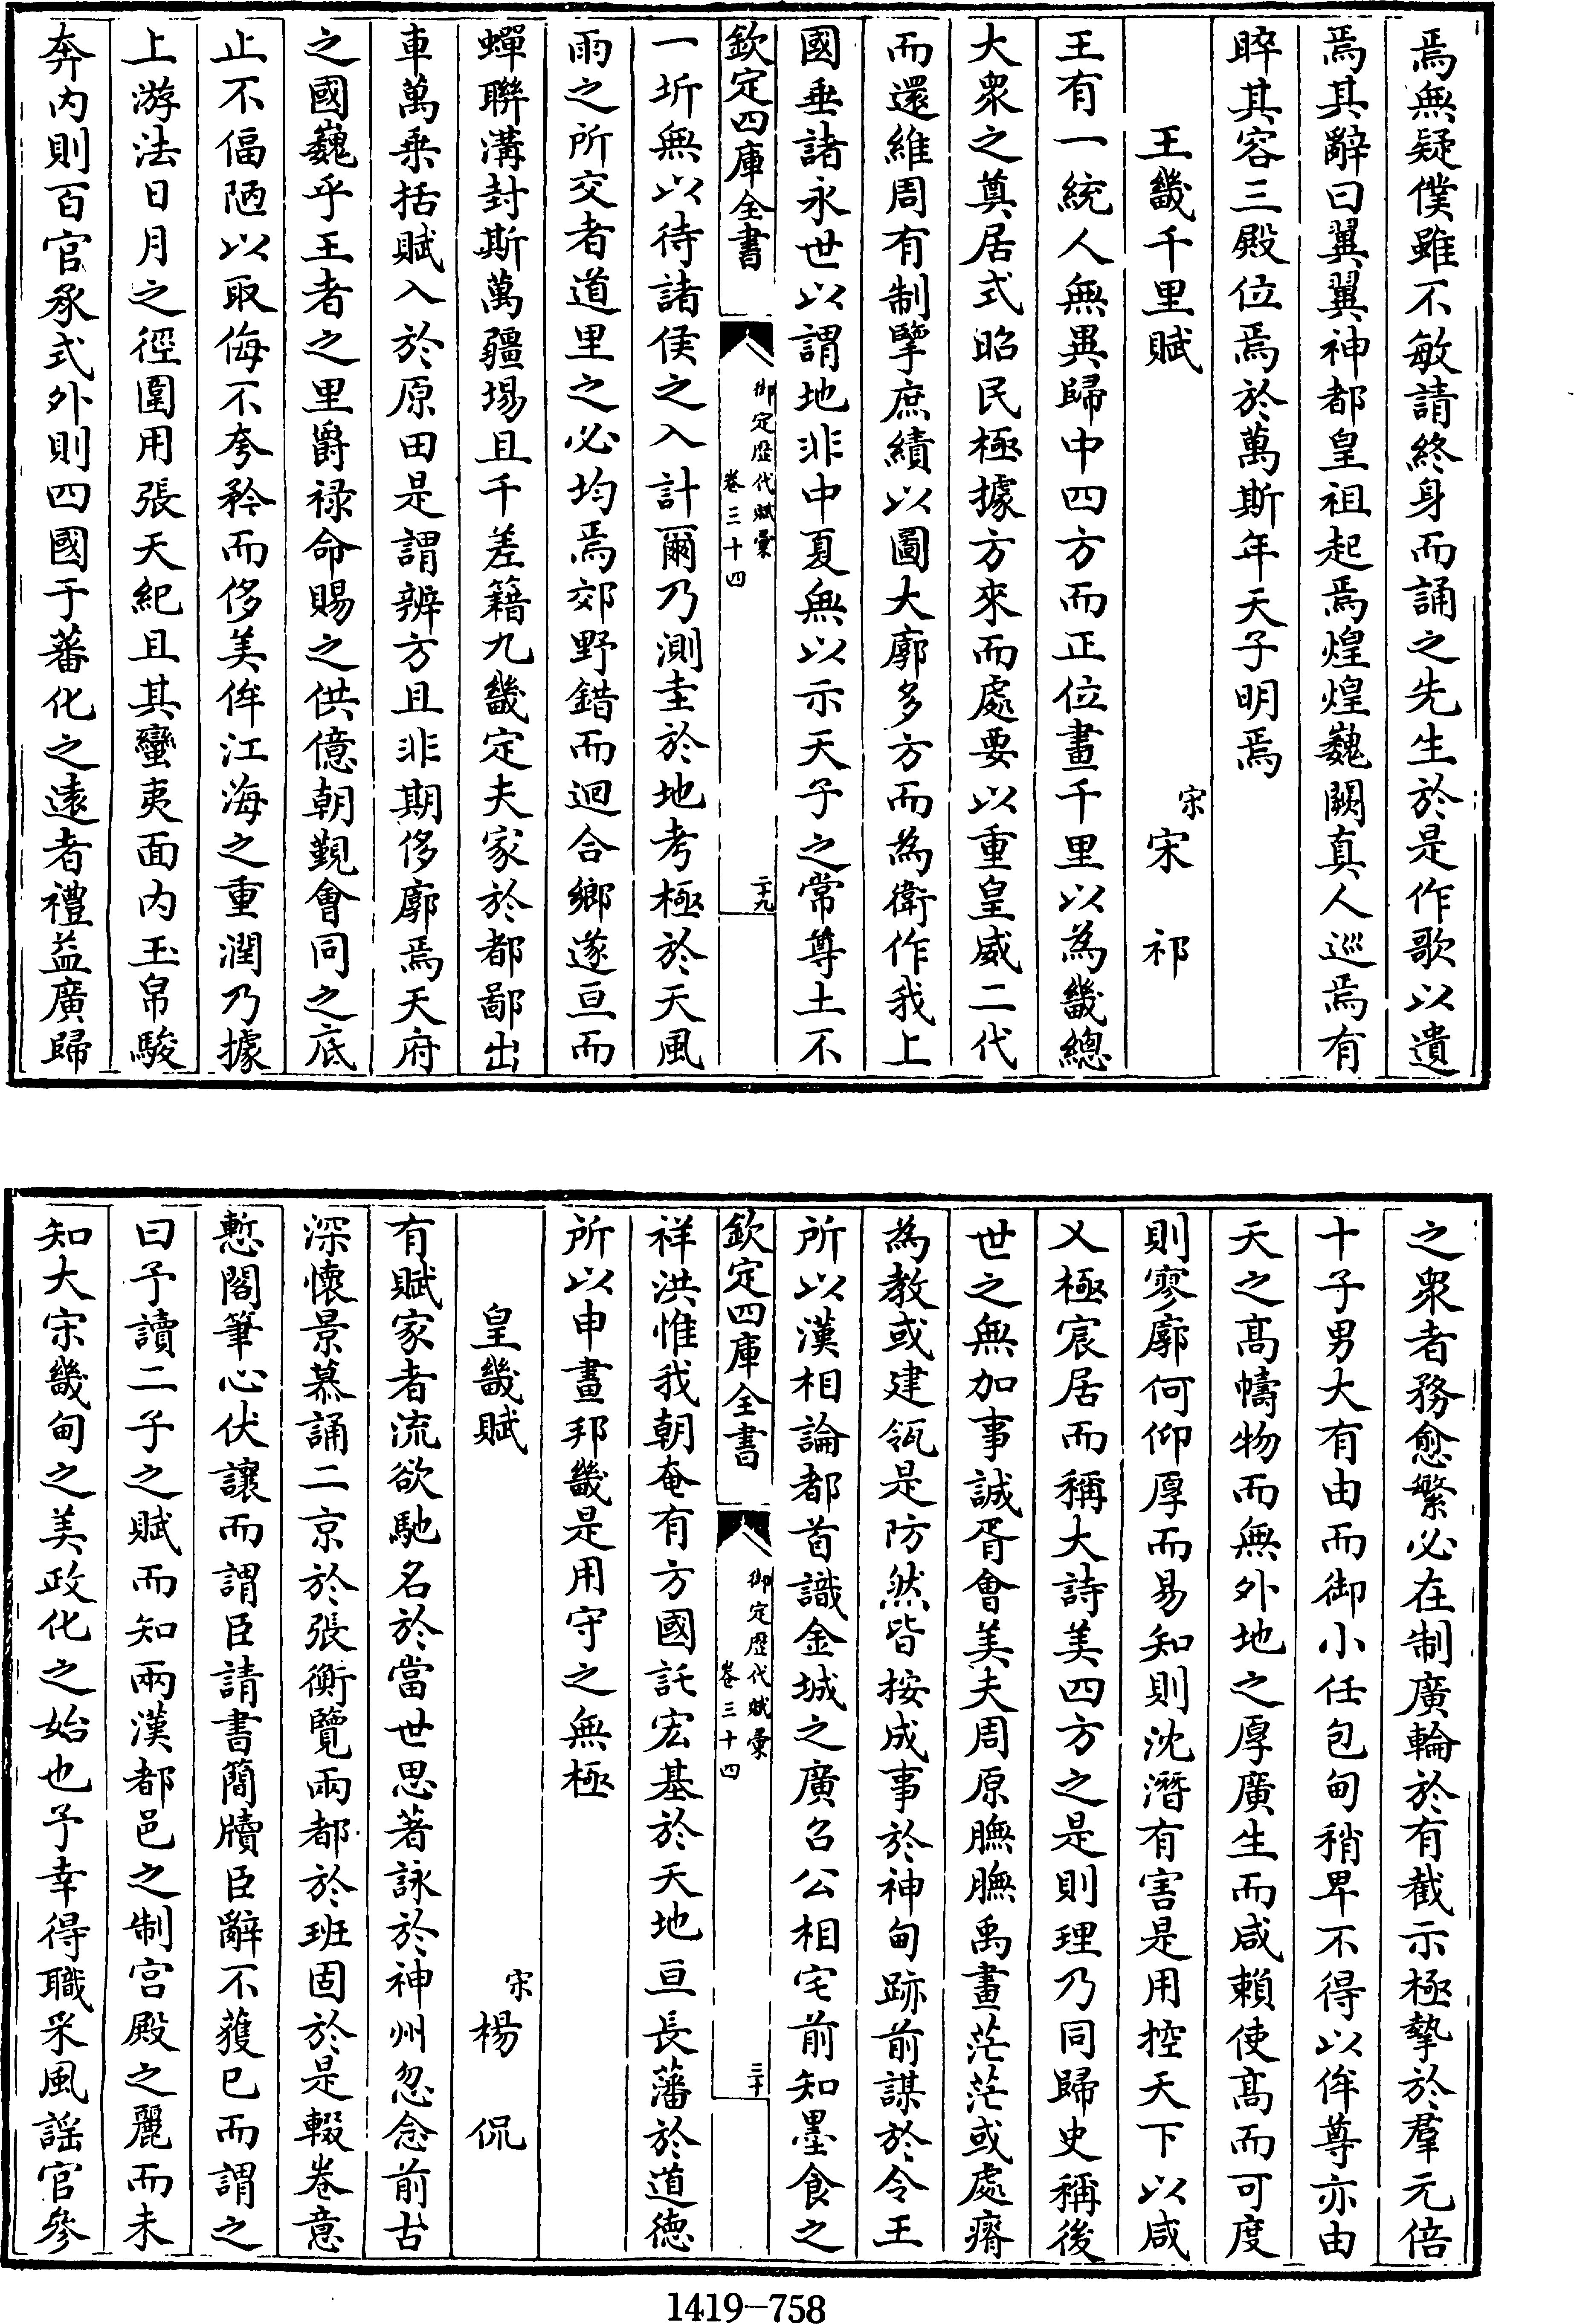 焉無疑僕雖不敏請終身而誦之先生於是作歌以遺
焉其辭曰翼翼神都皇祖起焉煌煌巍闕真人巡焉有
睟其容三殿位焉於萬斯年天子明焉
王畿千里賦
宋宋祁
王有一統人無異歸中四方而正位畫千里以為畿總
大衆之奠居式昭民極據方來而處要以重皇威二代
而還維周有制擥庶績以圖大廓多方而為衛作我上
國垂諸永世以謂地非中夏無以示天子之常尊土不
欽定四庫全書
御定歴代賦彙
卷三十四
二十九
一圻無以待諸侯之入計爾乃測圭於地考極於天風
雨之所交者道里之必均焉郊野錯而迴合鄉遂亘而
蟬聯溝封斯萬疆埸且千差籍九畿定夫家於都鄙出
車萬乗括賦入於原田是謂辨方且非期侈廓焉天府
之國巍乎王者之里爵禄命賜之供億朝覲會同之底
止不偪陋以取侮不夸矜而侈美侔江海之重潤乃據
上游法日月之徑圍用張天紀且其蠻夷面内玉帛駿
奔内則百官承式外則四國于蕃化之逺者禮益廣歸
之衆者務愈繁必在制廣輪於有截示極摯於羣元倍
十子男大有由而御小任包甸稍卑不得以侔尊亦由
天之髙幬物而無外地之厚廣生而咸賴使髙而可度
則寥廓何仰厚而易知則沈潛有害是用控天下以咸
乂極宸居而稱大詩美四方之是則理乃同歸史稱後
世之無加事誠胥會美夫周原膴膴禹畫茫茫或處瘠
為教或建瓴是防然皆按成事於神甸跡前謀於令王
所以漢相論都首識金城之廣召公相宅前知墨食之
欽定四庫全書
御定歴代賦彙
卷三十四
三十
祥洪惟我朝奄有方國託宏基於天地亘長藩於道德
所以申畫邦畿是用守之無極
皇畿賦
宋楊侃
有賦家者流欲馳名於當世思著詠於神州忽念前古
深懷景慕誦二京於張衡覽兩都於班固於是輟卷意
慙閣筆心伏讓而謂臣請書簡牘臣辭不獲已而謂之
曰予讀二子之賦而知兩漢都邑之制宫殿之麗而未
知大宋畿甸之美政化之始也予幸得職采風謡官參
1419—758